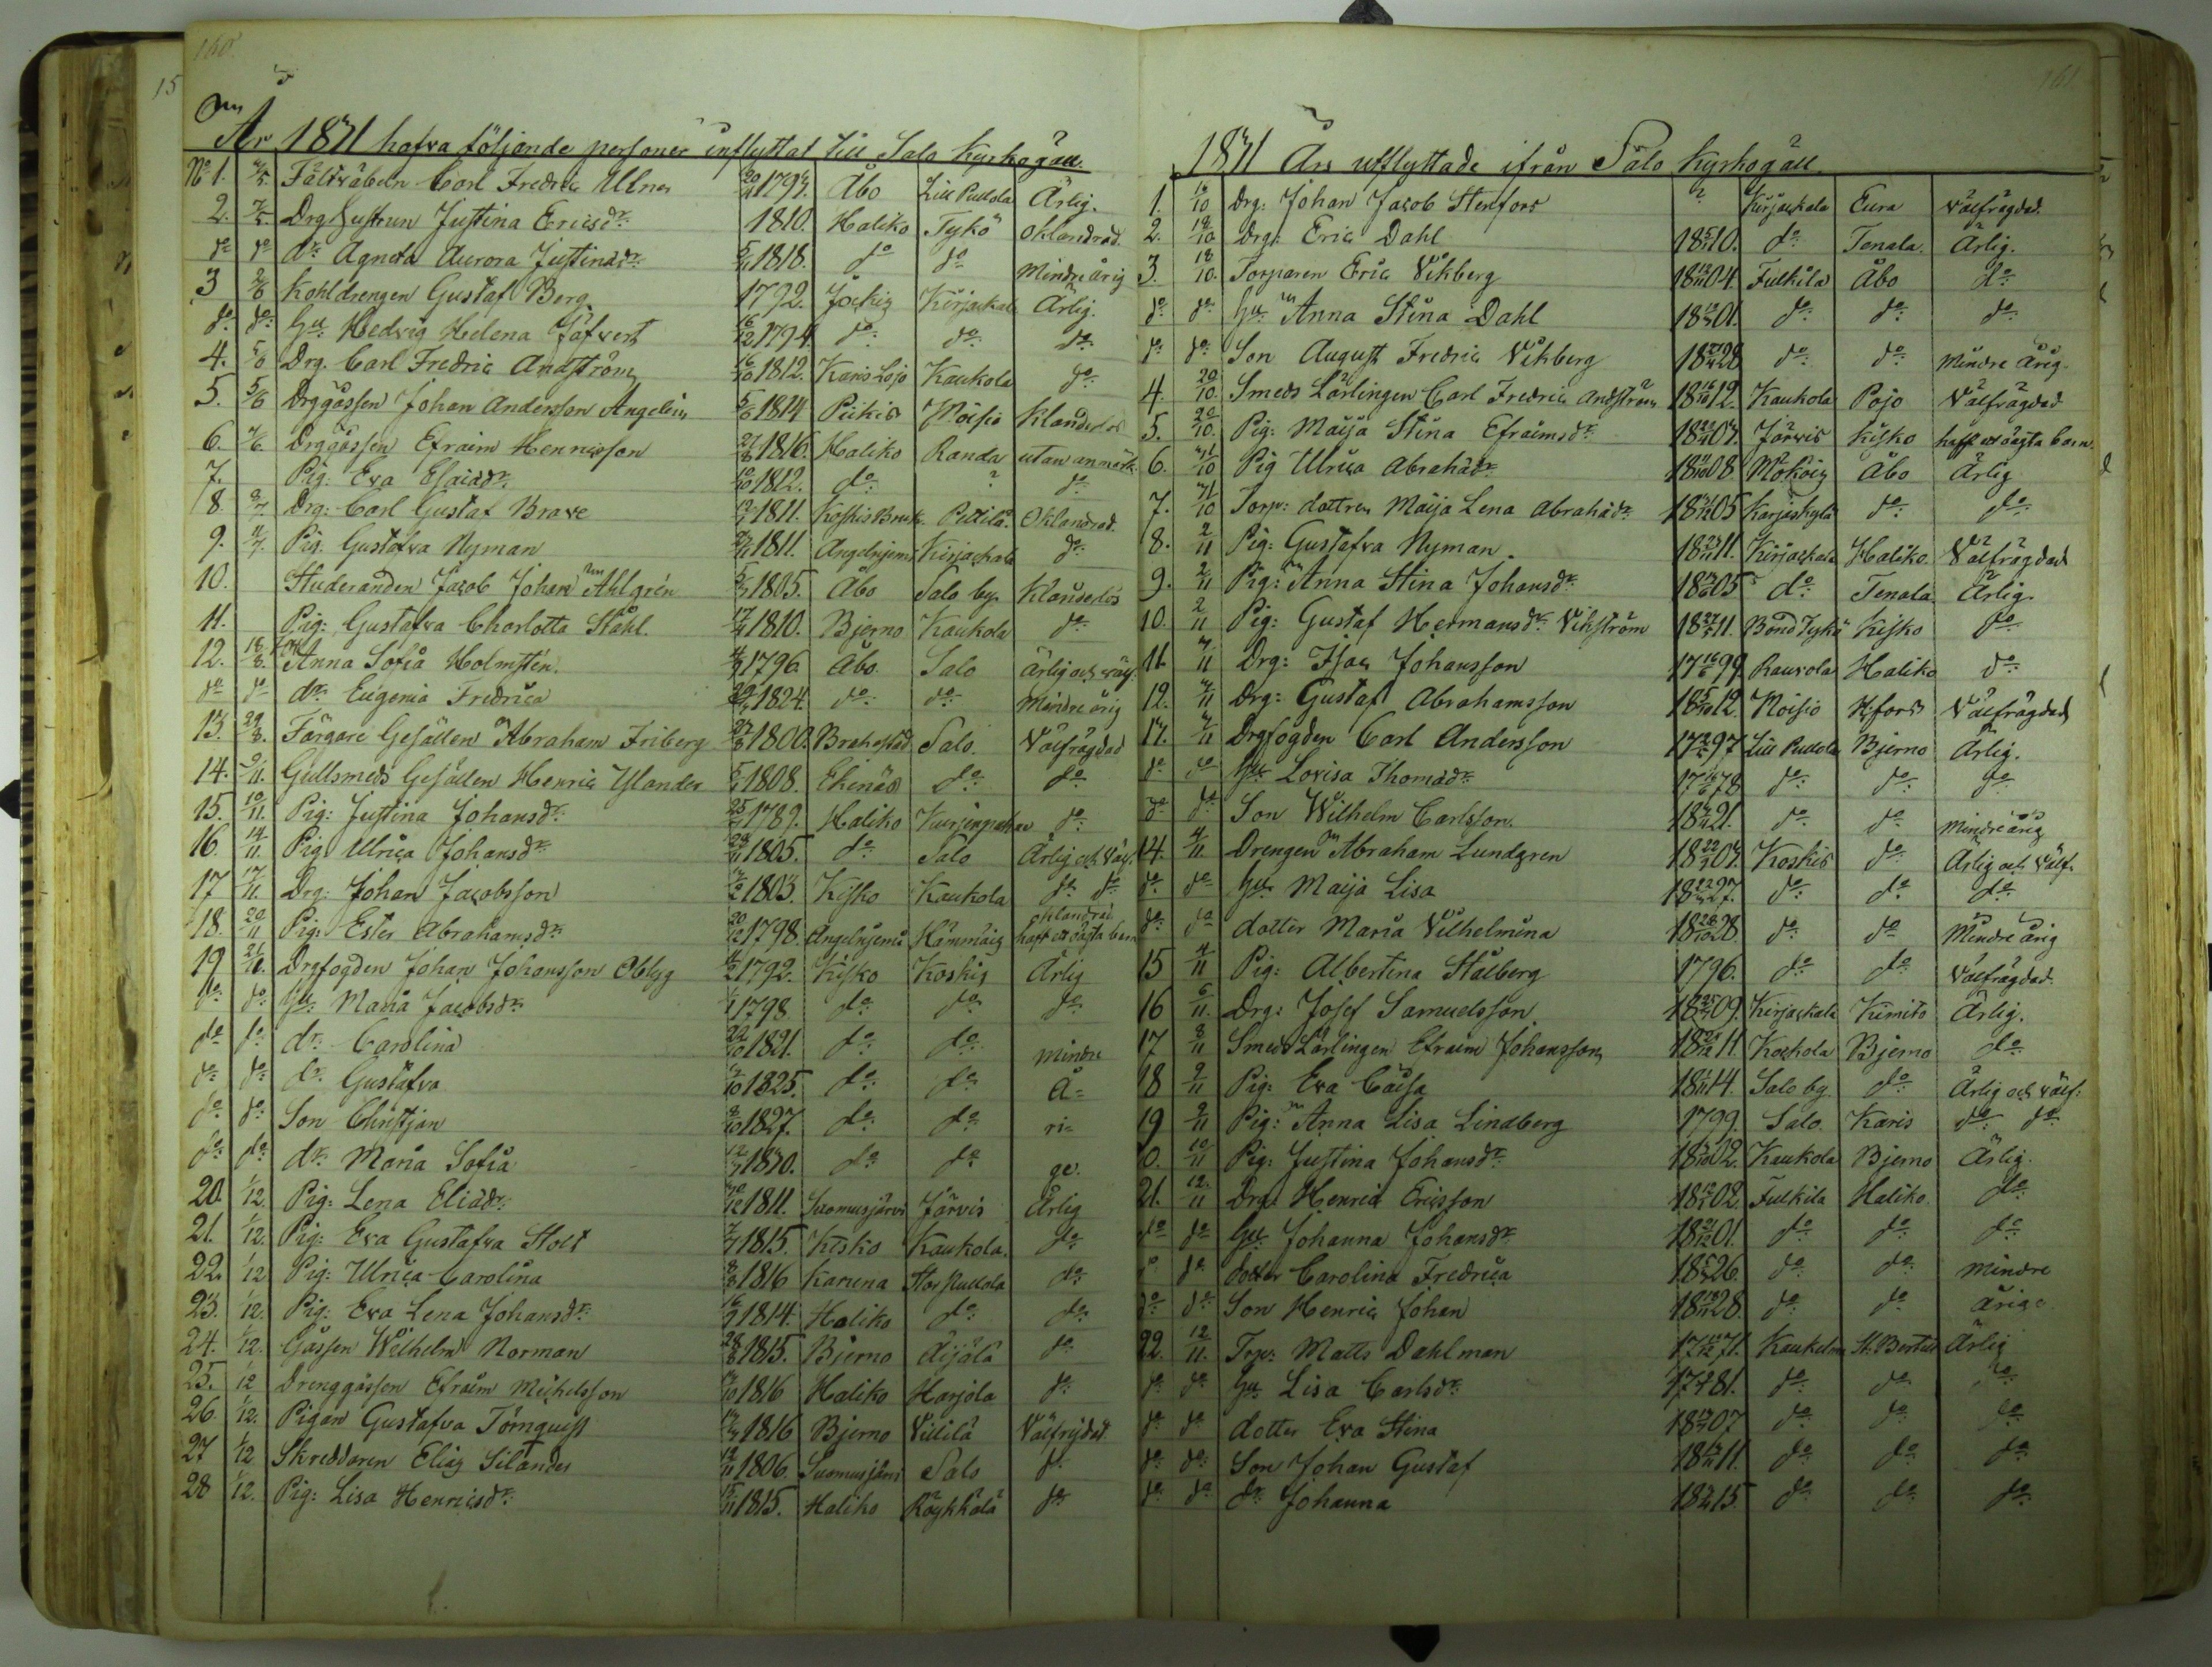 160.
År 1831 hafva följande personer inflyttat till Salo Kyrkogäll.
No 1. Fältväbeln Carl Fredric Ulner 1793. Åbo Lill Pullola Ärlig.
2. Drg Hustrun Justina Ericsdr 1810. Haliko Tykö oklandrad.
do do dr Agneta Aurora Justinadr 1818. do do Mindreårig
3 2/6 Kohldrengen Gustaf Berg 1792. Jockis Kirjackala Ärlig.
do do Hu Hedvig Helena Jäfvert 16/12 1794 do do do
4. 5/6 Drg. Carl Fredric Andström 16/10 1812. Karis Lojo Kaukola do
5. 5/6 Drggåssen Johan Andersson Angelin 5/6 1814 Piikis Moisio Klanderlös
6. Drggåssen Efraim Henricsson 1816. Haliko Randa utan anmärk.
7. Pig: Eva Esaiadr 1812. do ? do
8. Drg: Carl Gustaf Brave 1811. Koskis Bruk Pettilä Oklandrad.
9. Pig. Gustafva Nyman 1811. Angelnjemi Kirjackala do
10. Studeranden Jacob Johan Ahlgrén 1805. Åbo Salo by. Klanderlös
11. Pig: Gustafva Charlotta Ståhl. 1810. Bjerno Kaukola do
12. 18/8. Anna Sofia Holmstén. 1796 Åbo. Salo ärlig och välf.
do do dr Eugenia Fredrica 1824. do do Mindreårig
13. 29/8. Färgare Gesällen Abraham Friberg 1800. Brahestad Salo. Välfrägdad
14. Gullsmeds Gesällen Henric Ylander 1808. Ekenäs do do
15. 10/11. Pig: Justina Johansdr 1789. Haliko do
16. 14/11. Pig: Ulrica Johansdr 1805. do Salo Ärlig och Välf.
17 17/11. Drg: Johan Jacobsson 1803. Kisko Kaukola do do
18. 20/11 Pig: Ester Abrahamsdr 1798. Angelnjemi Hämmäis oklandrad haft ett oägta barn
19 Drgfogden Johan Johansson Obbyg 1792. Kisko Koskis Ärlig
do do Hu Maria Jacobsdr 1798 do do do
do do dr Carolina 22/10 1821. do do mindre
do do dr Gustafva 1825. do do å=
do do Son Christjan 1827. do do ri=
do do dr Maria Sofia 1830. do do ge.
20. 1/12. Pig: Lena Eliædr 1811. Suomusjärvi Järvis Ärlig
21. 1/12. Pig: Eva Gustafva Stolt 1815. Kisko Kaukola. do
22. 1/12 Pig: Ulrica Carolina 1816 Karuna Stor Pullola do
23. 1/12. Pig: Eva Lena Johansdr 1814. Haliko do do
24. 1/12. Gåssen Wilhelm Norman 1815. Bjerno Äijälä do
25. 1/12 Drenggåssen Efraim Michelsson 1816 Haliko Harjola do
26. 1/12. Pigan Gustafva Törnquist 1816 Bjerno Viitilä Välfrejdad
27 1/12 Skreddaren Elias Silander 1806. Suomusjärvi Salo do
28 1/12. Pig: Lisa Henricsdr 1815. Haliko Röykkälä do
161
1831 Års utflyttade ifrån Salo Kyrkogäll
1. Drg: Johan Jacob Stenfors ? Kirjackala Eura välfrägdad.
2. Drg: Eric Dahl 1810. do Tenala. Ärlig.
3. 18/10. Torparen Eric Vikberg 1804. Fulkila Åbo do
do do Hu Anna Stina Dahl 1801. do do do
do do Son August Fredric Vikberg 1828 do do Mindre årig.
4. 20/10. Smeds Lärlingen Carl Fredric Andström 1812. Kaukola Pojo Välfrägdad
5. 20/10. Pig: Maija Stina Efraimsdr Järvis Kisko haft ett oägta barn.
6. 31/10 Pig Ulrica Abrahadr 1808 Mökois Åbo Ärlig
7. 31/10 Torp: dottren Maija Lena Abrahadr 1805 Karjaskylä do do
8. 2/11 Pig: Gustafva Nyman. 1811. Kirjackala Haliko. Välfrägdad
9. 2/11 Pig: Anna Stina Johansdr 1805 do Tenala Ärlig.
10. 2/11 Pig: Gustaf Hermansdr Vikström 1811. Bond Tykö Kisko do
11. Drg: Isac Johansson 1799 Rauvola Haliko do
12. Drg: Gustaf Abrahamsson 1812. Moisio H:fors Välfrägdad
13. Drgfogden Carl Andersson 1797 Lill Pullola Bjerno Ärlig.
do do Hu Lovisa Thomadr 1778 do do do
do do Son Wilhelm Carlsson. 1821. do do Mindreårig
14. 4/11. Drengen Abraham Lundgren Koskis do Ärlig och välf.
do do Hu Maija Lisa do do do
do do dotter Maria Vilhelmina 1828 do do Mindre årig
15 4/11 Pig: Albertina Stålberg 1796. do do Välfrägdad.
16 6/11. Drg: Josef Samuelsson 1809. Kirjackala Kimito Ärlig.
17 8/11 Smeds Lärlingen Efraim Johansson 1811. Kaukola Bjerno do
18 9/11 Pig: Eva Caisa 1814. Salo by. do Ärlig och välf.
19 9/11 Pig: Anna Lisa Lindberg 1799. Salo. Karis do do
20. 10/11 Pig: Justina Johansdr 1802. Kaukola Bjerno Ärlig.
21. 12/11 Drg: Henric Ericsson 1802. Fulkila Haliko. do
do do Hu Johanna Johansdr 1801. do do do
do do dotter Carolina Fredrica 1826. do do mindre
do do Son Henric Johan 1828. do do åriga
22. 12/11. Torp: Matts Dahlman 1771. Kaukelm St. Bertils Ärlig
do do Hu Lisa Carlsdr 1781. do do do
do do dotter Eva Stina 1807 do do do
do do Son Johan Gustaf 1811. do do do
do do dr Johanna 1815 do do do